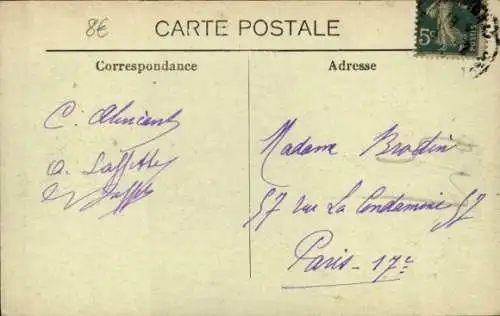 8€
CARTE POSTALE
5c
POSTES
Correspondance
Adresse
C.
Madame Brodin
O. Laffitte
57 rue La Condamine 57
Paris - 17e